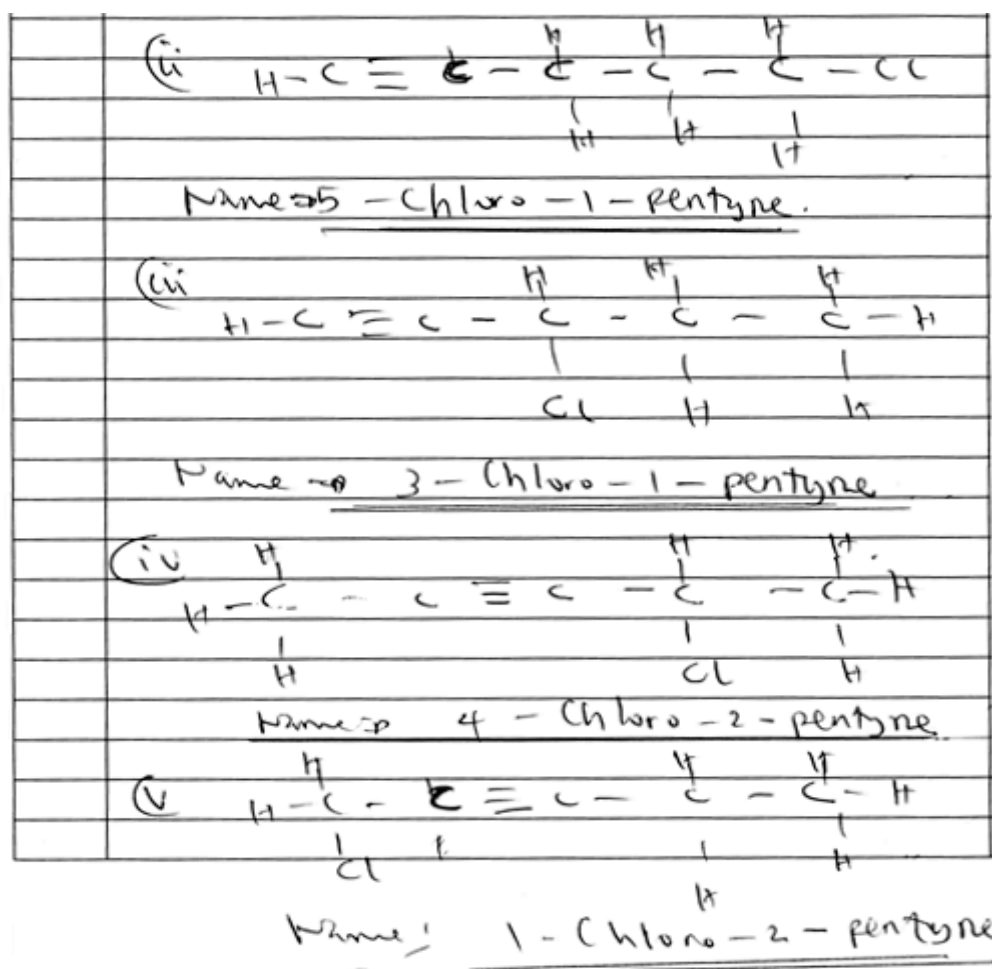 H H H
(ii H - C ≡ C - C - C - C - Cl
H H H
Name ⇒ 5 - Chloro - 1 - pentyne.
(iii H H H
H - C ≡ C - C - C - C - H
Cl H H
Name → 3 - Chloro - 1 - pentyne
(iv H H H
H - C - C ≡ C - C - C - H
H Cl H
Name ⇒ 4 - Chloro - 2 - pentyne
H H H
(v H - C - C ≡ C - C - C - H
Cl H H
Name: 1 - Chloro - 2 - pentyne